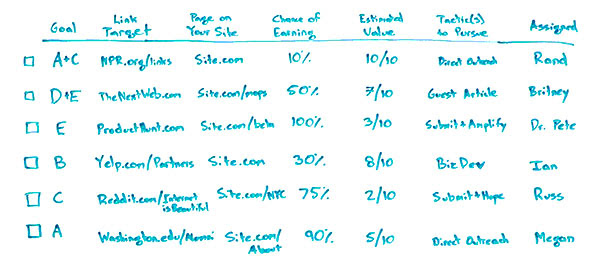 Goal Link Target Page on Your Site Chance of Earning Estimated Value Tactic(s) to Pursue Assigned
A+C NPR.org/links Site.com 10% 10/10 Direct Outreach Rand
D+E TheNextWeb.com Site.com/maps 50% 7/10 Guest Article Britney
E ProductHunt.com Site.com/beta 100% 3/10 Submit+Amplify Dr. Pete
B Yelp.com/Partners Site.com 30% 8/10 Biz Dev Ian
C Reddit.com/Internet isBeautiful Site.com/NYC 75% 2/10 Submit+Hope Russ
A Washington.edu/ Site.com/About 90% 5/10 Direct Outreach Megan